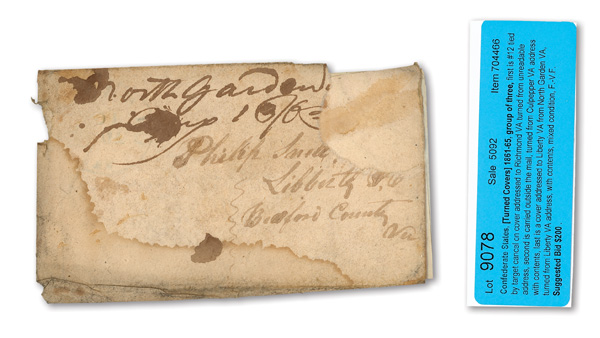 North Garden
Philip
Libberty
Bedford County
Va
Lot 9078 Sale 5092 Item 704466
Confederate States, [Turned Covers] 1861-65, group of three, first is #12 tied
by target cancel on cover addressed to Richmond VA turned from unreadable
address, second is carried outside the mail, turned from Culpepper VA address
with contents, last is a cover addressed to Liberty VA from North Garden VA,
turned from Liberty VA address, with contents, mixed condition, F.-V.F.
Suggested Bid $200